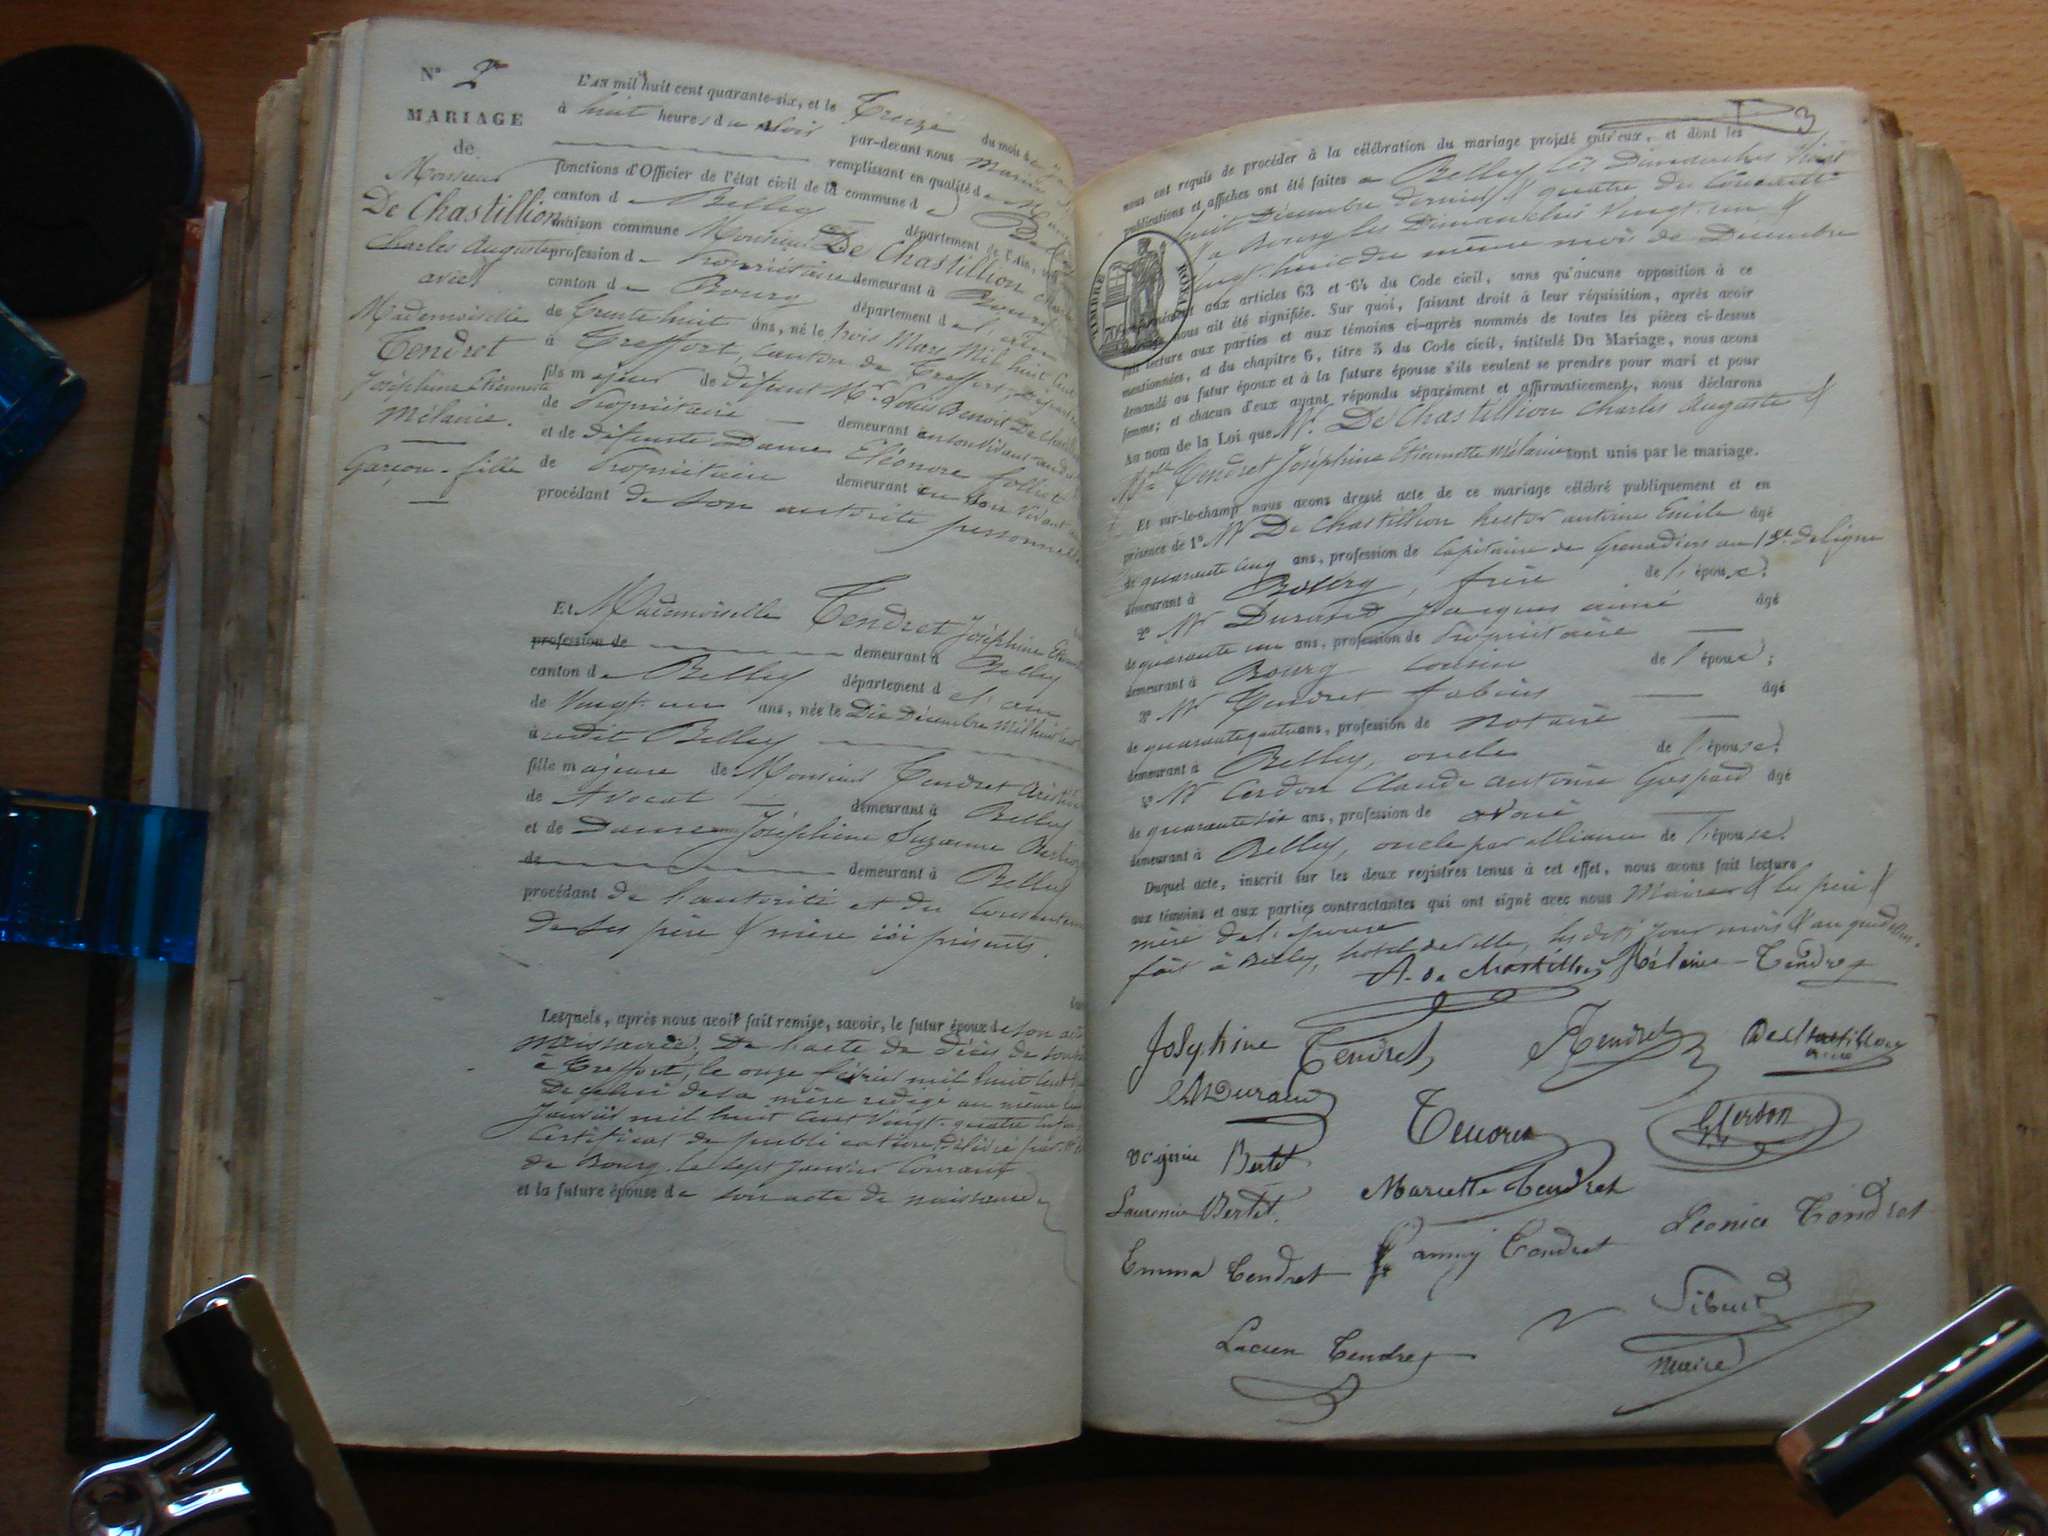 N° 2
MARIAGE
de
Monsieur
De Chastillion
Charles Auguste
avec
Mademoiselle
Tendret
Joséphine Etiennette
Mélanie.
Garçon - fille
L'AN mil huit cent quarante-six, et le Treize du mois
à huit heures du soir par-devant nous Maire
remplissant en qualité de
fonctions d'Officier de l'état civil de la commune d
canton de Belley département de l'Ain,
maison commune Monsieur De Chastillion
profession de Propriétaire demeurant à Bourg
canton de Bourg département de l'ain
de Trente huit ans, né le trois Mars Mil huit Cent
à Treffort, canton de Treffort,
fils majeur de défunt Mr Louis Benoit De
de Propriétaire demeurant en son vivant
et de défunte Dame Eléonore folliet
de Propriétaire demeurant en son vivant
procédant de son autorité personnelle
Et Mademoiselle Tendret Joséphine
profession de demeurant à Belley
canton de Belley département de l'ain
de Vingt-un ans, née le Dix Décembre Mil huit cent
audit Belley
fille majeure de Monsieur Tendret
de Avocat demeurant à Belley
et de Dame Joséphine Suzanne
de demeurant à Belley
procédant de l'autorité et du
de ses père & mère ici présents.
Lesquels, après nous avoir fait remise, savoir, le futur époux de son
naissance, De l'acte de décès de
à Treffort, le onze février mil huit cent
De celui de sa mère rédigé au même
Janvier mil huit cent vingt-quatre
Certificat de publication délivré par
de Bourg le sept Janvier Courant
et la future épouse de son acte de naissance
3
nous ont requis de procéder à la célébration du mariage projeté entr'eux, et dont les
publications et affiches ont été faites à Belley les Dimanches Vingt
huit Décembre dernier & quatre du Courant
& à Bourg les Dimanches Vingt-un &
Vingt-huit du même mois de Décembre
TIMBRE ROYAL
conformément aux articles 63 et 64 du Code civil, sans qu'aucune opposition à ce
mariage nous ait été signifiée. Sur quoi, faisant droit à leur réquisition, après avoir
fait lecture aux parties et aux témoins ci-après nommés de toutes les pièces ci-dessus
mentionnées, et du chapitre 6, titre 5 du Code civil, intitulé Du Mariage, nous avons
demandé au futur époux et à la future épouse s'ils veulent se prendre pour mari et pour
femme; et chacun d'eux ayant répondu séparément et affirmativement, nous déclarons
au nom de la Loi que Mr. De Chastillion Charles Auguste &
Melle Tendret Joséphine Etiennette Mélanie sont unis par le mariage.
Et sur-le-champ nous avons dressé acte de ce mariage célébré publiquement et en
présence de 1° Mr De Chastillion hector antoine Emile âgé
de quarante cinq ans, profession de Capitaine de Grenadiers au de ligne
demeurant à Bourg, frère de l'époux.
2° Mr Durand Jacques aimé âgé
de quarante un ans, profession de Propriétaire
demeurant à Bourg cousin de l'époux;
3° Mr Tendret fabius âgé
de quarante quatre ans, profession de notaire
demeurant à Belley, oncle de l'épouse.
4° Mr Cerdon Claude antoine Gaspard âgé
de quarante six ans, profession de avoué
demeurant à Belley, oncle par alliance de l'épouse.
Duquel acte, inscrit sur les deux registres tenus à cet effet, nous avons fait lecture
aux témoins et aux parties contractantes qui ont signé avec nous Maire & les père &
mère de l'épouse
fait à Belley, hotel de ville, les dits jour mois & an que dessus.
A. De Chastillion Mélanie Tendret
Joséphine Tendret ATendret De Chastillon
aimé
Durand Tendret Cerdon
Virginie Bertet
Mariette Tendret
Laurencie Bertet. Léonice Tendret
Emma Tendret Fanny Tendret
Lucien Tendret Sibuet
maire